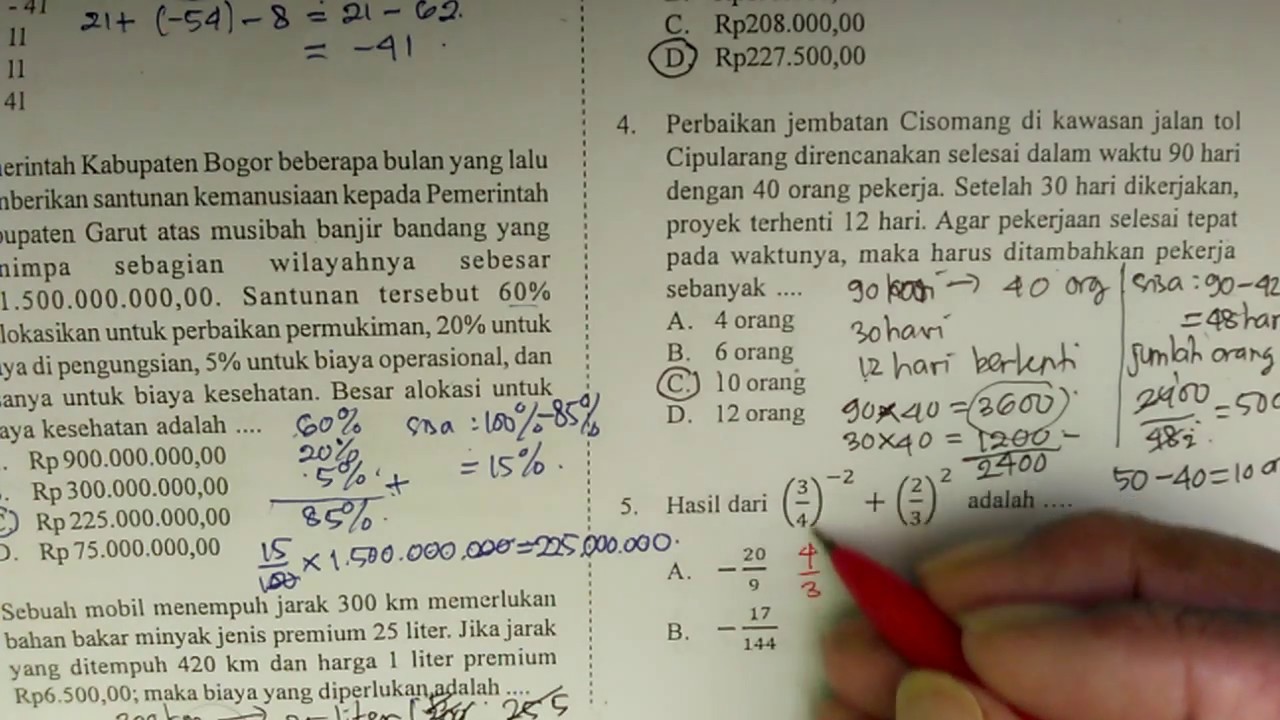 - 41
11
11
41
21 + (-54) - 8 = 21 - 62.
= -41.
Kabupaten Bogor beberapa bulan yang lalu
santunan kemanusiaan kepada Pemerintah
Garut atas musibah banjir bandang yang
sebagian wilayahnya sebesar
1.500.000.000,00. Santunan tersebut 60%
untuk perbaikan permukiman, 20% untuk
di pengungsian, 5% untuk biaya operasional, dan
untuk biaya kesehatan. Besar alokasi untuk
kesehatan adalah ....
Rp 900.000.000,00
Rp 300.000.000,00
Rp 225.000.000,00
D. Rp 75.000.000,00
60%
20%
5% +
85%.
sisa : 100% - 85%
= 15%.
15/100 × 1.500.000.000 = 225.000.000.
Sebuah mobil menempuh jarak 300 km memerlukan
bahan bakar minyak jenis premium 25 liter. Jika jarak
yang ditempuh 420 km dan harga 1 liter premium
Rp6.500,00; maka biaya yang diperlukan adalah ....
C. Rp208.000,00
D. Rp227.500,00
4. Perbaikan jembatan Cisomang di kawasan jalan tol
Cipularang direncanakan selesai dalam waktu 90 hari
dengan 40 orang pekerja. Setelah 30 hari dikerjakan,
proyek terhenti 12 hari. Agar pekerjaan selesai tepat
pada waktunya, maka harus ditambahkan pekerja
sebanyak ....
A. 4 orang
B. 6 orang
C. 10 orang
D. 12 orang
90 hari → 40 org
30 hari
12 hari berhenti
90 × 40 = 3600
30 × 40 = 1200 -
2400
sisa : 90 - 42
= 48 har
Jumlah orang
2400/48 = 50
50 - 40 = 10
5. Hasil dari (3/4)^-2 + (2/3)^2 adalah ....
A. -20/9
4/3
B. -17/144